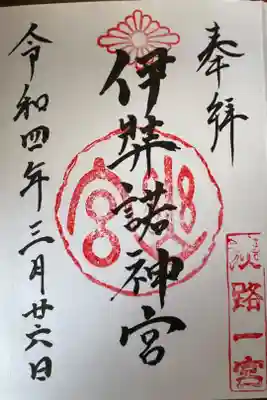 奉拝
淡路一宮
伊弉諾神宮
令和四年三月廿六日